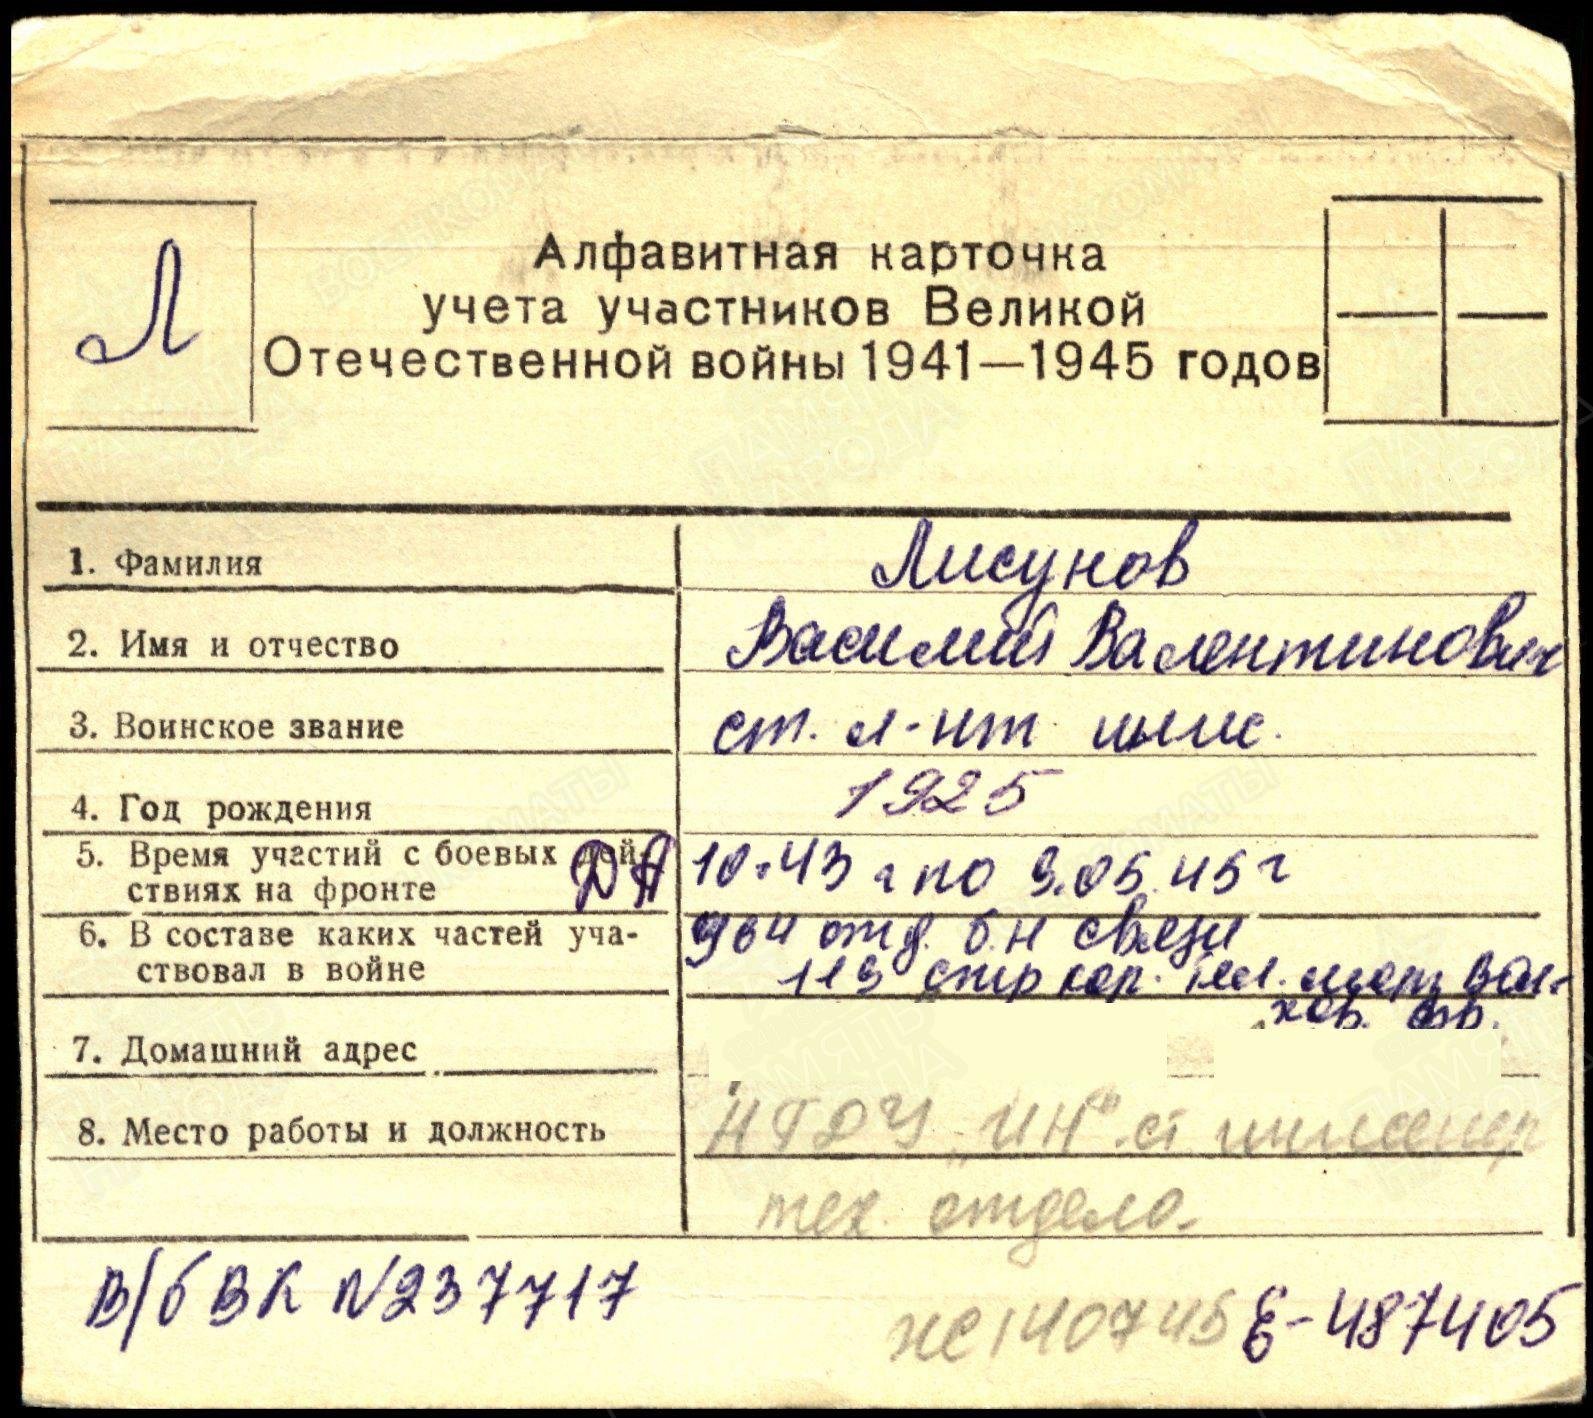 Л
Алфавитная карточка
учета участников Великой
Отечественной войны 1941—1945 годов
1. Фамилия Лисунов
2. Имя и отчество Василий Валентинович
3. Воинское звание ст. л-нт инж.
4. Год рождения 1925
5. Время участий с боевых дей- ДА 10.43 г по 9.05.45 г
ствиях на фронте
6. В составе каких частей уча- 964 отд. б.н связи
ствовал в войне 113 стр кор. тел. мот. Вол-
хов. фр.
7. Домашний адрес
8. Место работы и должность НГДУ „ИН" ст инженер
тех. отдела.
В/б ВК N237717
НС 140745 Е-487405